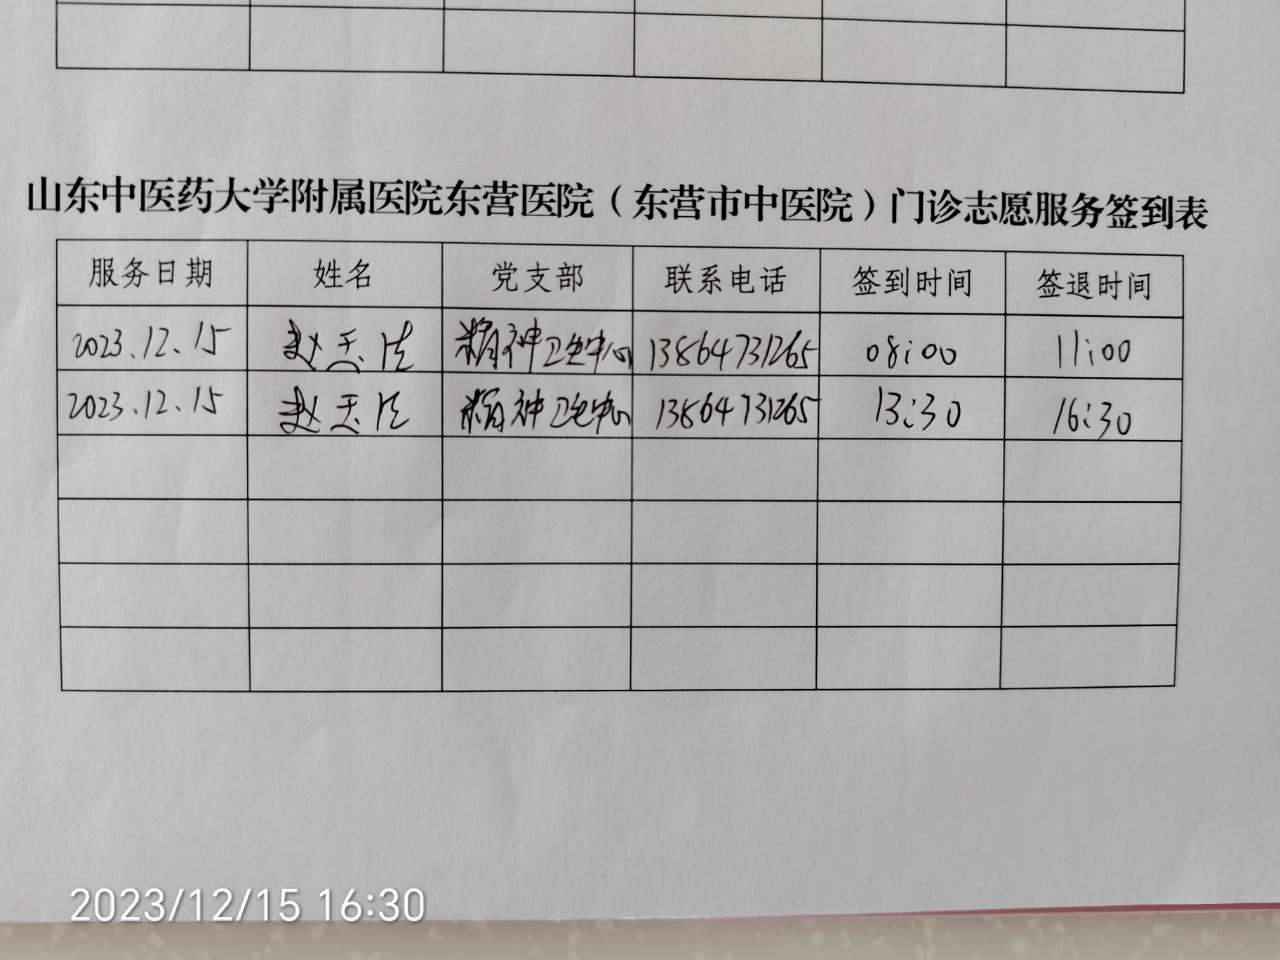 山东中医药大学附属医院东营医院（东营市中医院）门诊志愿服务签到表
服务日期 姓名 党支部 联系电话 签到时间 签退时间
2023.12.15 赵天法 精神卫生中心 13864731265 08:00 11:00
2023.12.15 赵天法 精神卫生中心 13864731265 13:30 16:30
2023/12/15 16:30